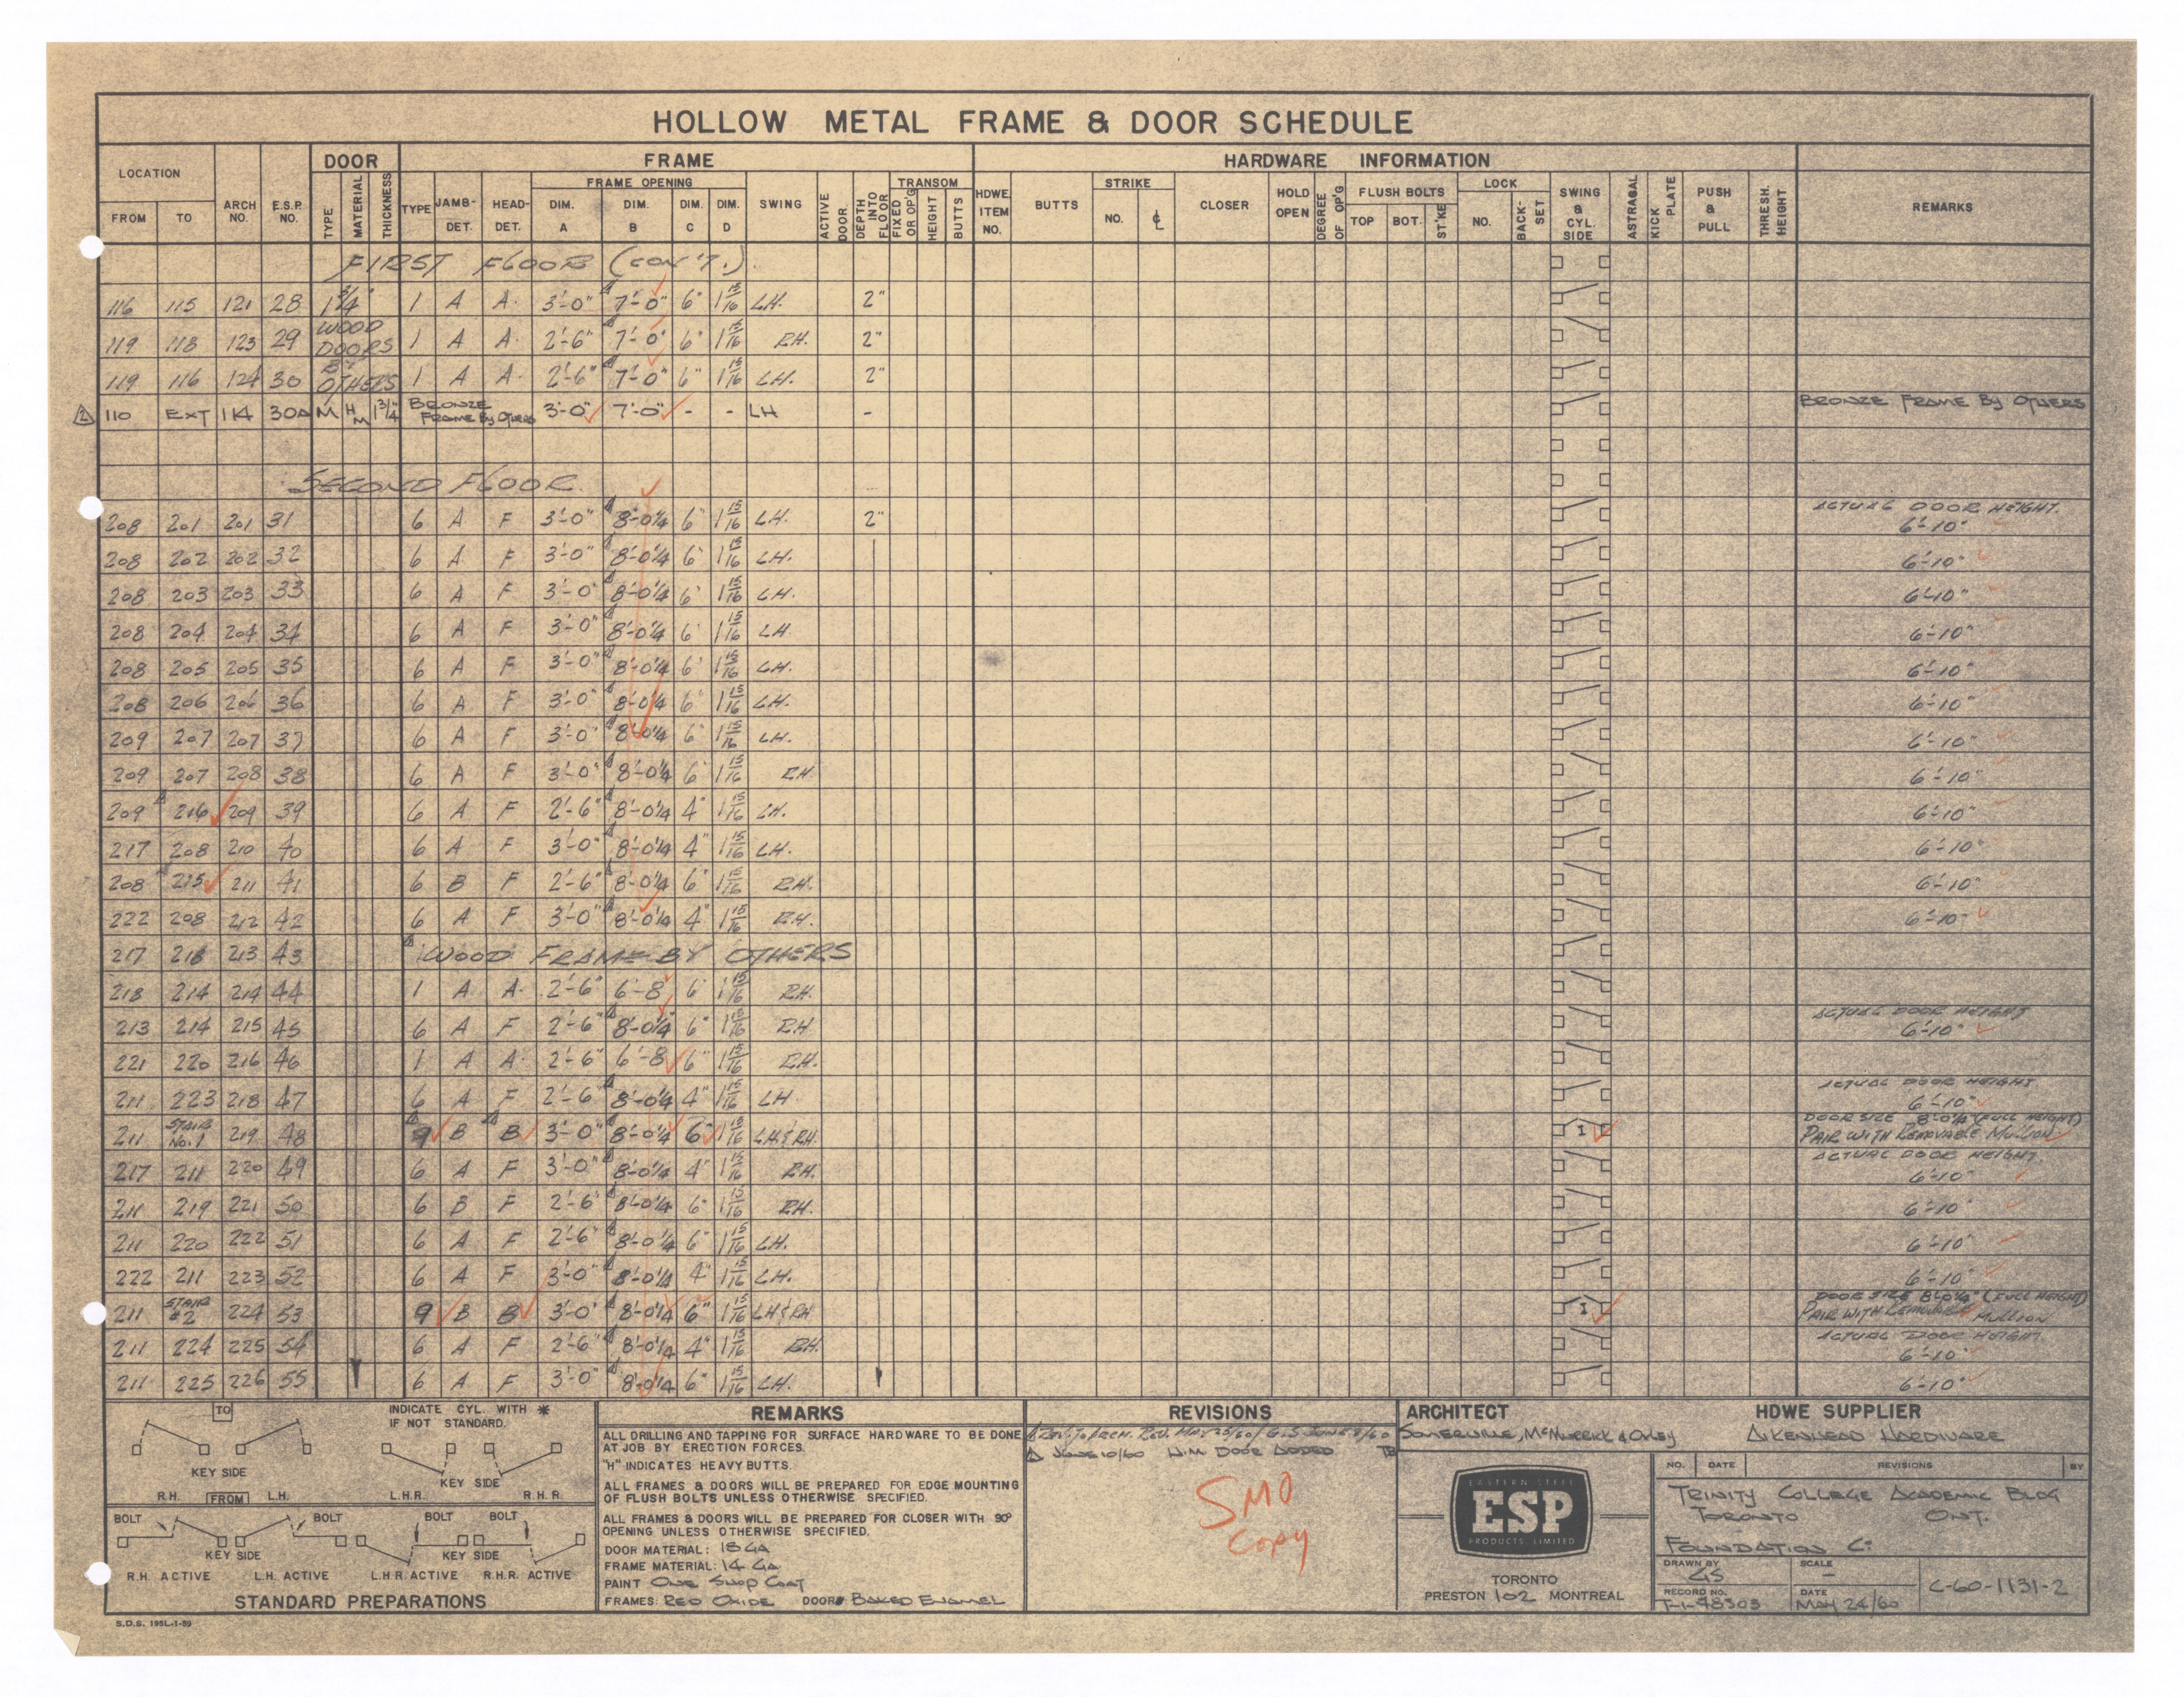 HOLLOW METAL FRAME & DOOR SCHEDULE
LOCATION DOOR FRAME HARDWARE INFORMATION
FROM TO ARCH NO. E.S.P. NO. TYPE MATERIAL THICKNESS TYPE JAMB-DET. HEAD-DET. FRAME OPENING DIM. A DIM. B DIM. C DIM. D SWING ACTIVE DOOR DEPTH INTO FLOOR TRANSOM FIXED OR OP'G HEIGHT BUTTS HDWE. ITEM NO. BUTTS STRIKE NO. ℄ CLOSER HOLD OPEN DEGREE OF OP'G FLUSH BOLTS TOP BOT. ST.'KE LOCK NO. BACK-SET SWING & CYL. SIDE ASTRAGAL KICK PLATE PUSH & PULL THRESH. HEIGHT REMARKS
FIRST FLOOR (CON'T.)
116 115 121 28 1 3/4" 1 A A. 3'-0" 7'-0" 6" 1 15/16 LH. 2"
119 118 123 29 WOOD DOORS 1 A A. 2'-6" 7'-0" 6" 1 15/16 RH. 2"
119 116 124 30 BY OTHERS 1 A A. 2'-6" 7'-0" 6" 1 15/16 LH. 2"
2 110 EXT 114 30A M HM 1 3/4" BRONZE FRAME BY OTHERS 3'-0" 7'-0" - - LH - BRONZE FRAME BY OTHERS
SECOND FLOOR.
208 201 201 31 6 A F 3'-0" 8'-0 1/4 6" 1 15/16 LH. 2" ACTUAL DOOR HEIGHT. 6'-10"
208 202 202 32 6 A F 3'-0" 8'-0 1/4 6" 1 15/16 LH. 6'-10"
208 203 203 33 6 A F 3'-0" 8'-0 1/4 6" 1 15/16 LH. 6'-10"
208 204 204 34 6 A F 3'-0" 8'-0 1/4 6" 1 15/16 LH 6'-10"
208 205 205 35 6 A F 3'-0" 8'-0 1/4 6" 1 15/16 LH. 6'-10"
208 206 206 36 6 A F 3'-0" 8'-0 1/4 6" 1 15/16 LH. 6'-10"
209 207 207 37 6 A F 3'-0" 8'-0 1/4 6" 1 15/16 LH. 6'-10"
209 207 208 38 6 A F 3'-0" 8'-0 1/4 6" 1 15/16 RH 6'-10"
209 216 209 39 6 A F 2'-6" 8'-0 1/4 4" 1 15/16 LH. 6'-10"
217 208 210 40 6 A F 3'-0" 8'-0 1/4 4" 1 15/16 LH. 6'-10"
208 215 211 41 6 B F 2'-6" 8'-0 1/4 6" 1 15/16 RH. 6'-10"
222 208 212 42 6 A F 3'-0" 8'-0 1/4 4" 1 15/16 RH. 6'-10"
217 218 213 43 WOOD FRAME BY OTHERS
218 214 214 44 1 A A. 2'-6" 6'-8 6" 1 15/16 RH.
213 214 215 45 6 A F 2'-6" 8'-0 1/4" 6" 1 15/16 RH ACTUAL DOOR HEIGHT 6'-10"
221 220 216 46 1 A A. 2'-6" 6'-8 6" 1 15/16 RH.
211 223 218 47 6 A F 2'-6" 8'-0 1/4 4" 1 15/16 LH ACTUAL DOOR HEIGHT 6'-10"
211 STAIR No.1 219 48 9 B B 3'-0" 8'-0 1/4 6" 1 15/16 LH & RH. I DOOR SIZE 8'-0 1/4" (FULL HEIGHT) PAIR WITH REMOVABLE MULLION
217 211 220 49 6 A F 3'-0" 8'-0 1/4 4" 1 15/16 RH. ACTUAL DOOR HEIGHT. 6'-10"
211 219 221 50 6 B F 2'-6" 8'-0 1/4 6" 1 15/16 RH. 6'-10"
211 220 222 51 6 A F 2'-6" 8'-0 1/4 6" 1 15/16 LH. 6'-10"
222 211 223 52 6 A F 3'-0" 8'-0 1/4 4" 1 15/16 LH. 6'-10"
211 STAIR #2 224 53 9 B B 3'-0" 8'-0 1/4 6" 1 15/16 LH & RH I DOOR SIZE 8'-0 1/4" (FULL HEIGHT) PAIR WITH REMOVABLE MULLION
211 224 225 54 6 A F 2'-6" 8'-0 1/4 4" 1 15/16 RH. ACTUAL DOOR HEIGHT. 6'-10"
211 225 226 55 6 A F 3'-0" 8'-0 1/4 6" 1 15/16 LH. 6'-10"
TO
INDICATE CYL. WITH *
IF NOT STANDARD.
KEY SIDE
KEY SIDE
R.H. FROM L.H. L.H.R. R.H.R.
BOLT BOLT BOLT BOLT
KEY SIDE KEY SIDE
R.H. ACTIVE L.H. ACTIVE L.H.R. ACTIVE R.H.R. ACTIVE
STANDARD PREPARATIONS
S.D.S. 195L-1-59
REMARKS
ALL DRILLING AND TAPPING FOR SURFACE HARDWARE TO BE DONE
AT JOB BY ERECTION FORCES.
"H" INDICATES HEAVY BUTTS.
ALL FRAMES & DOORS WILL BE PREPARED FOR EDGE MOUNTING
OF FLUSH BOLTS UNLESS OTHERWISE SPECIFIED.
ALL FRAMES & DOORS WILL BE PREPARED FOR CLOSER WITH 90°
OPENING UNLESS OTHERWISE SPECIFIED.
DOOR MATERIAL: 18 GA
FRAME MATERIAL: 14 GA
PAINT ONE SHOP COAT
FRAMES: RED OXIDE DOORS BAKED ENAMEL
REVISIONS
REV. TO ARCH. REV. MAY 25/60 / G.S JUNE 8/60
JUNE 10/60 H.M. DOOR ADDED TB
SMO
Copy
ARCHITECT
SOMERVILLE, McMURRICK & OXLEY
HDWE SUPPLIER
AIKENHEAD HARDWARE
EASTERN STEEL
ESP
PRODUCTS LIMITED
TORONTO
PRESTON 102 MONTREAL
NO. DATE REVISIONS BY
TRINITY COLLEGE ACADEMIC BLDG
TORONTO ONT.
FOUNDATION Co
DRAWN BY GS
SCALE -
RECORD NO. T-1-48303
DATE MAY 24/60
C-60-1131-2